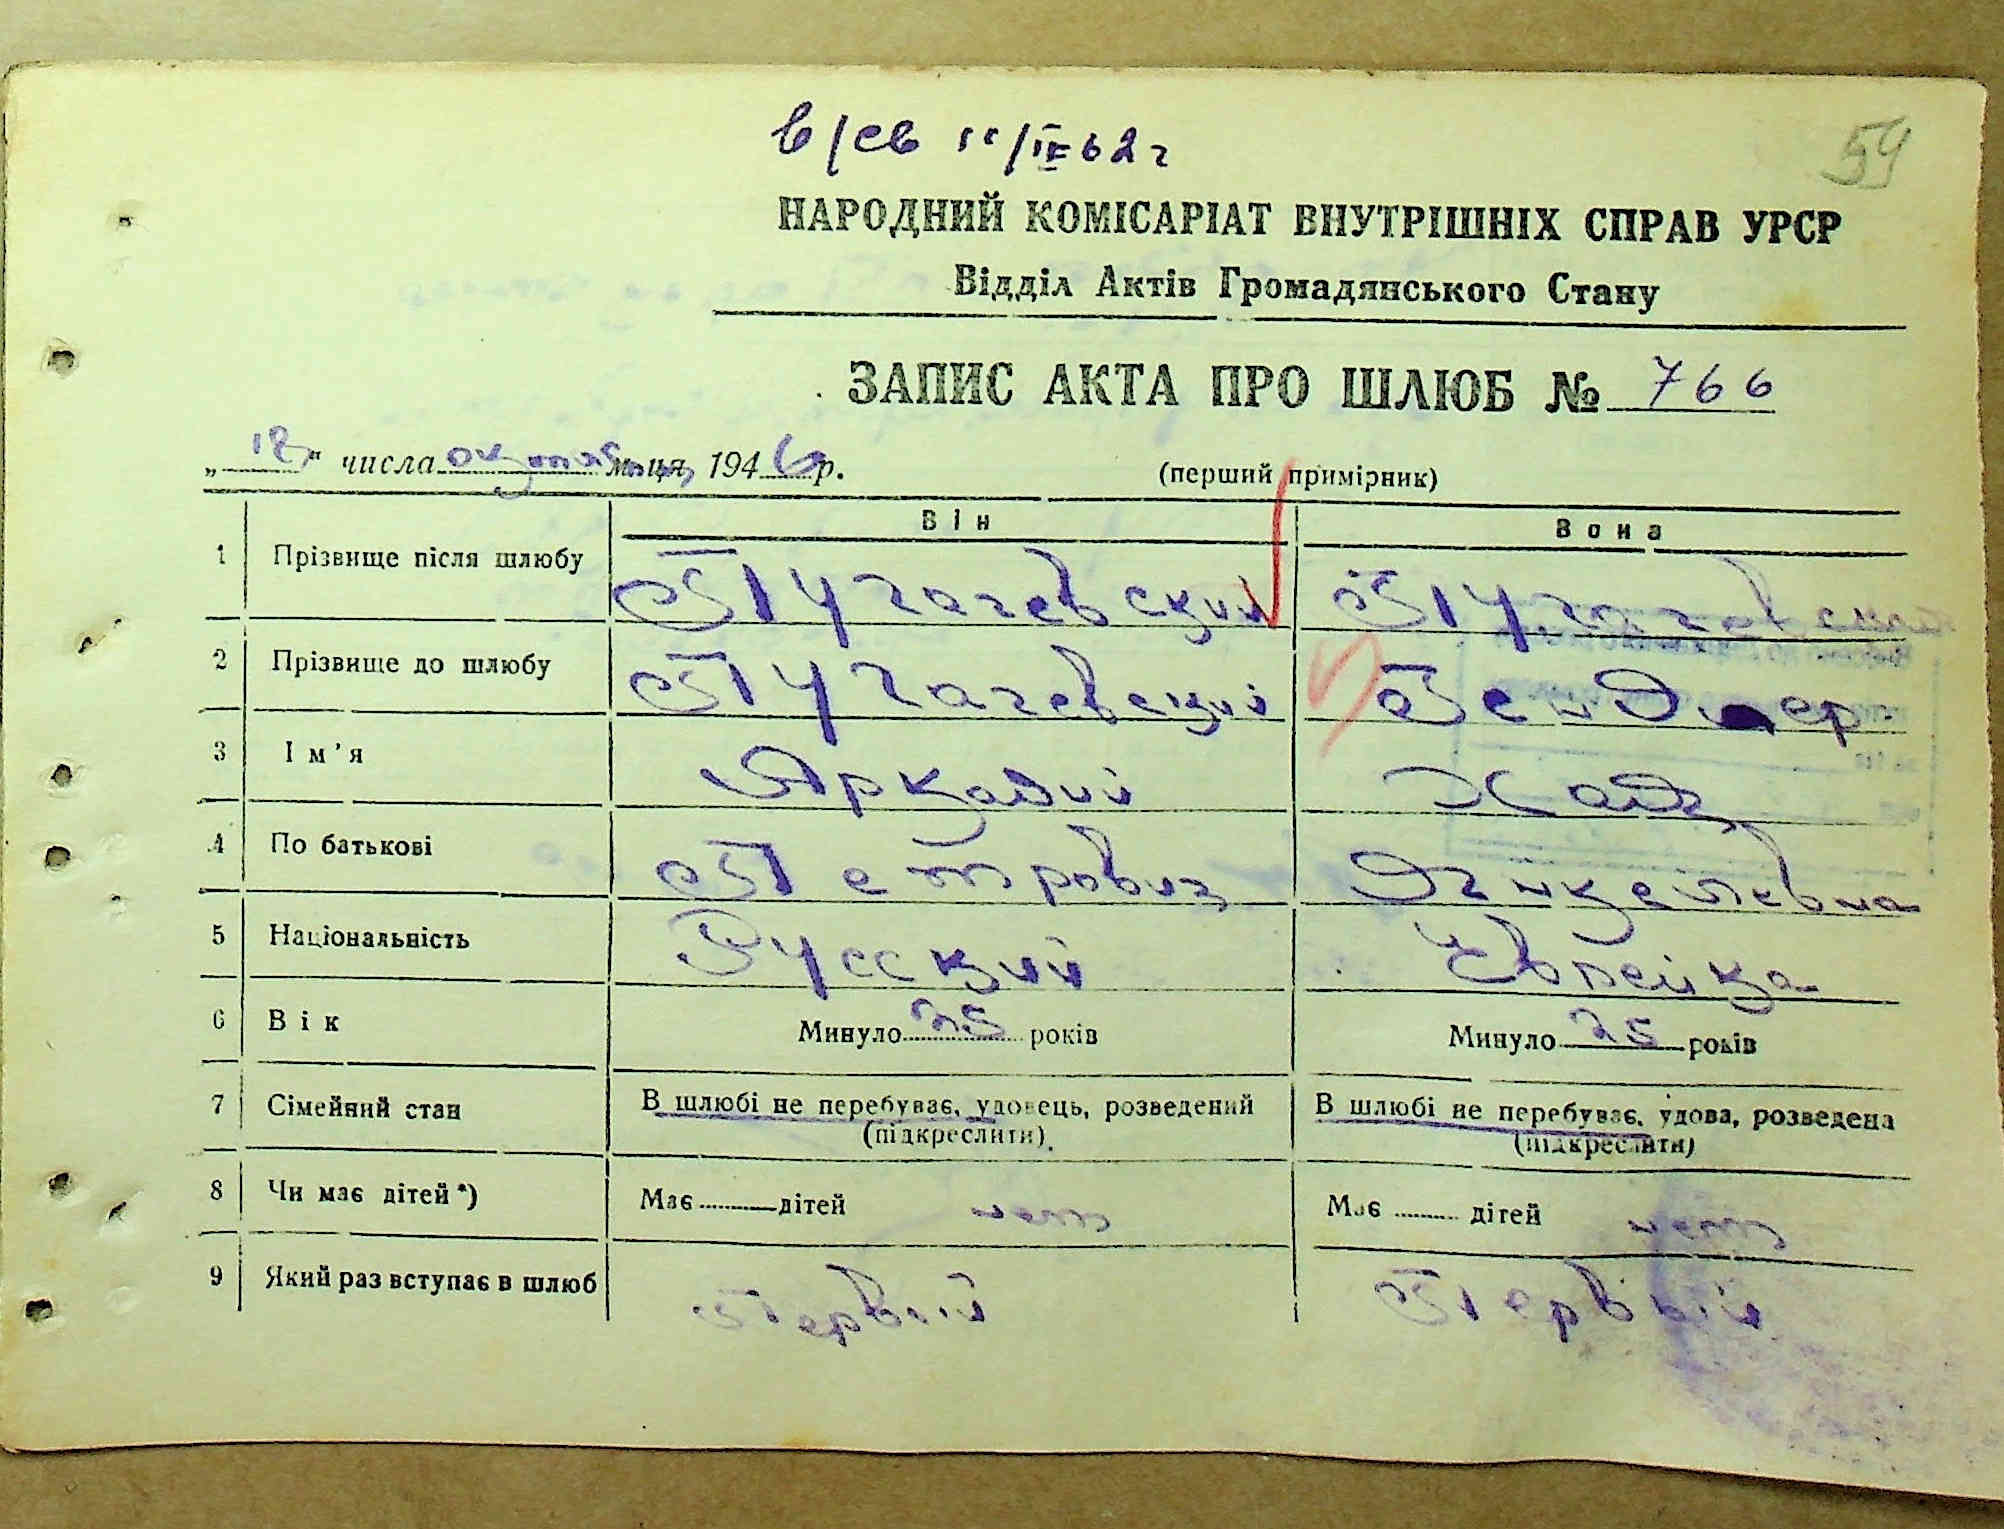 в/св 11/IX 62 г
59
НАРОДНИЙ КОМІСАРІАТ ВНУТРІШНІХ СПРАВ УРСР
Відділ Актів Громадянського Стану
ЗАПИС АКТА ПРО ШЛЮБ № 766
„12“ числа октября м-ця, 1946 р. (перший примірник)
Він Вона
1 Прізвище після шлюбу Пугачевский Пугачевская
2 Прізвище до шлюбу Пугачевский Бендер
3 Ім'я Аркадий
4 По батькові Петрович
5 Національність Русский Еврейка
6 Вік Минуло 25 років Минуло 25 років
7 Сімейний стан В шлюбі не перебуває, удовець, розведений (підкреслити). В шлюбі не перебуває, удова, розведена (підкреслити)
8 Чи має дітей*) Має дітей нет Має дітей нет
9 Який раз вступає в шлюб Первый Первый